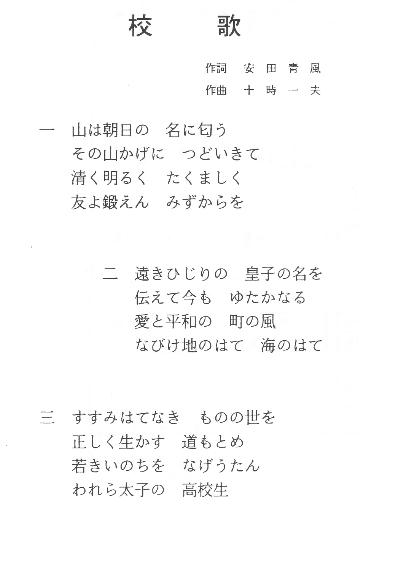 校　歌
作詞　安　田　青　風
作曲　十　時　一　夫
一　山は朝日の　名に匂う
その山かげに　つどいきて
清く明るく　たくましく
友よ鍛えん　みずからを
二　遠きひじりの　皇子の名を
伝えて今も　ゆたかなる
愛と平和の　町の風
なびけ地のはて　海のはて
三　すすみはてなき　ものの世を
正しく生かす　道もとめ
若きいのちを　なげうたん
われら太子の　高校生